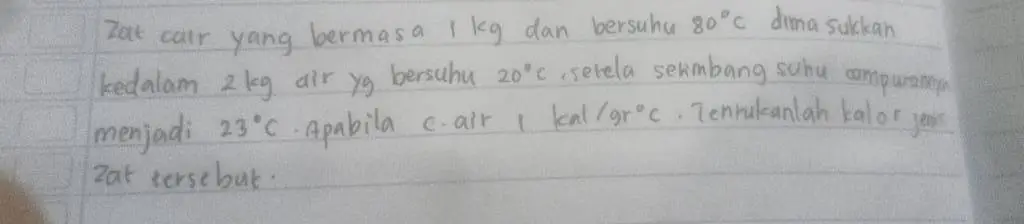 Zat cair yang bermasa 1 kg dan bersuhu 80°c dimasukkan
kedalam 2 kg air yg bersuhu 20°c, setela seimbang suhu campurannya
menjadi 23°C. Apabila c.air 1 kal/gr°c. Tentukanlah kalor jenis
Zat tersebut.